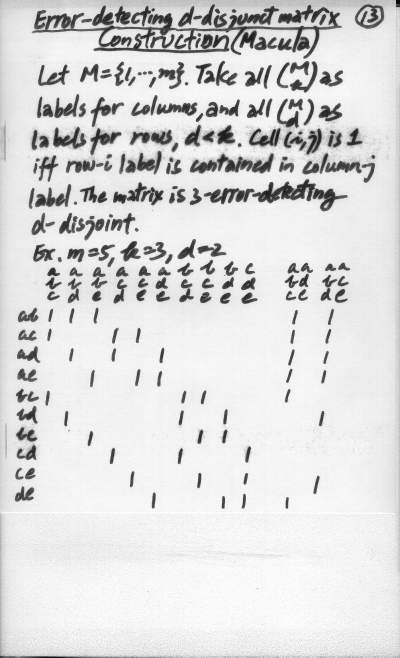 Error-detecting d-disjunct matrix (13)
Construction (Macula)
Let M={1,...,m}. Take all (M k) as
labels for columns, and all (M d) as
labels for rows, d<k. Cell (i,j) is 1
iff row-i label is contained in column-j
label. The matrix is 3-error-detecting
d-disjoint.
Ex. m=5, k=3, d=2
a a a a a a b b b c aa aa
b b b c c d c c d d bd bc
c d e d e e d e e e ce de
ab 1 1 1 1 1
ac 1 1 1 1 1
ad 1 1 1 1 1
ae 1 1 1 1 1
bc 1 1 1 1
bd 1 1 1 1
be 1 1 1
cd 1 1 1
ce 1 1 1 1
de 1 1 1 1